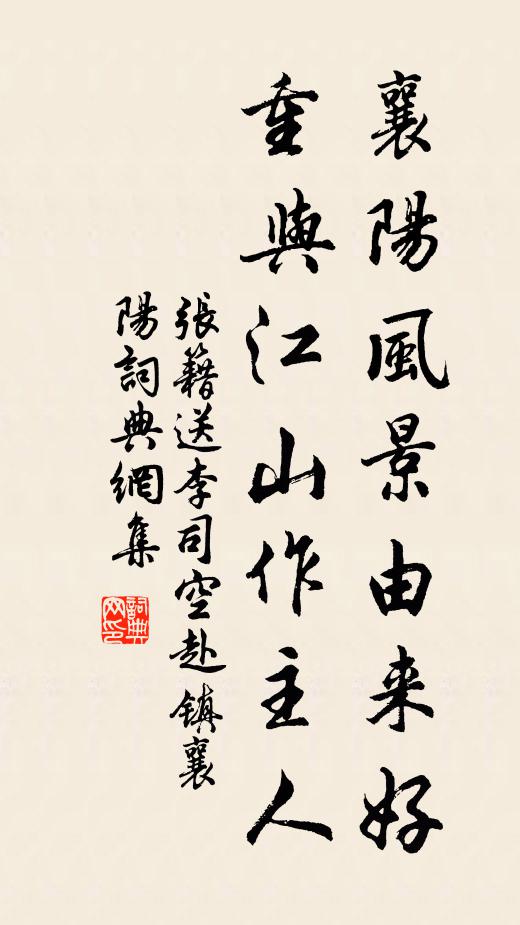 襄陽風景由来好
重與江山作主人
張籍送李司空赴鎮襄
陽詞典網集
詞典网印